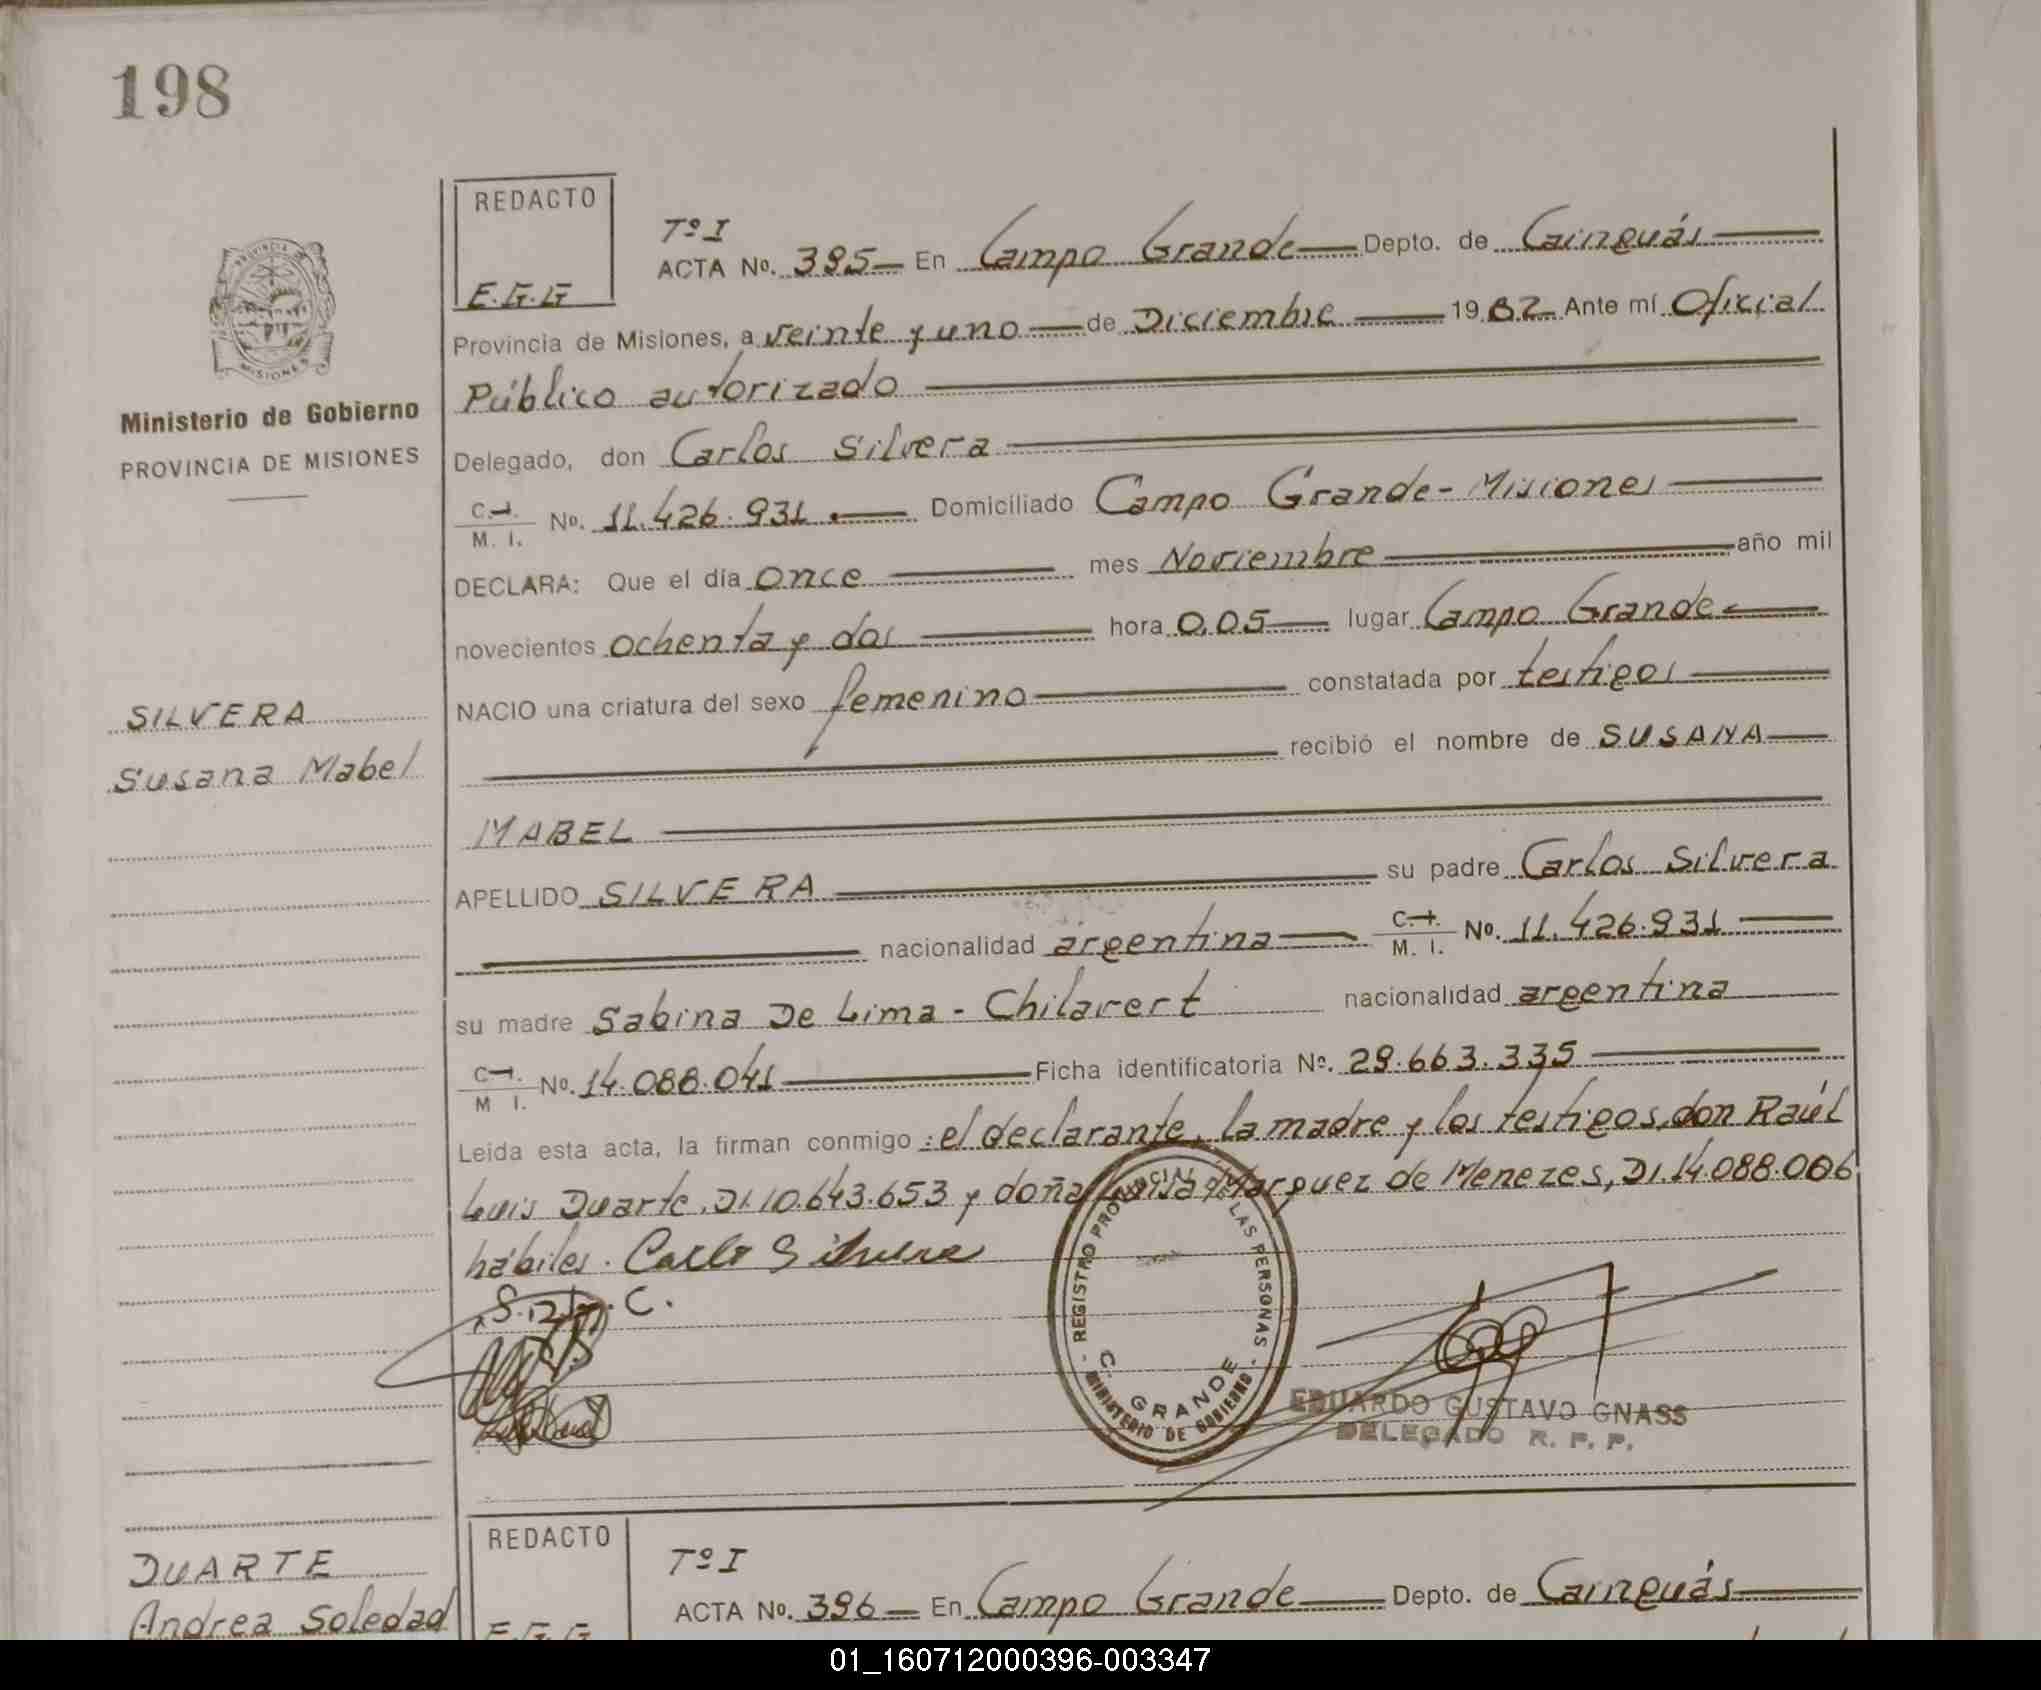 198
REDACTO
E.G.G
Tº I
ACTA Nº. 395 En Campo Grande Depto. de Cainguás
Provincia de Misiones, a veinte y uno de Diciembre 1982 Ante mí Oficial
Público autorizado
Delegado, don Carlos Silvera
C. I.
M. I. Nº. 11.426.931. Domiciliado Campo Grande - Misiones
DECLARA: Que el día once mes Noviembre año mil
novecientos ochenta y dos hora 0,05 lugar Campo Grande
NACIO una criatura del sexo femenino constatada por testigos
recibió el nombre de SUSANA
MABEL
APELLIDO SILVERA su padre Carlos Silvera
nacionalidad argentina C. I.
M. I. Nº. 11.426.931
su madre Sabina De Lima - Chilavert nacionalidad argentina
C. I.
M I. Nº. 14.088.041 Ficha identificatoria Nº. 29.663.335
Leida esta acta, la firman conmigo: el declarante, la madre y los testigos, don Raúl
Luis Duarte, DI. 10.643.653 y doña Luisa Marquez de Menezes, DI. 14.088.006
hábiles.
PROVINCIA DE
MISIONES
Ministerio de Gobierno
PROVINCIA DE MISIONES
SILVERA
Susana Mabel
REGISTRO PROVINCIAL DE LAS PERSONAS
C. GRANDE
MINISTERIO DE GOBIERNO
EDUARDO GUSTAVO GNASS
DELEGADO R. P. P.
DUARTE
Andrea Soledad
REDACTO
E.G.G
Tº I
ACTA Nº. 396 En Campo Grande Depto. de Cainguás
01_160712000396-003347